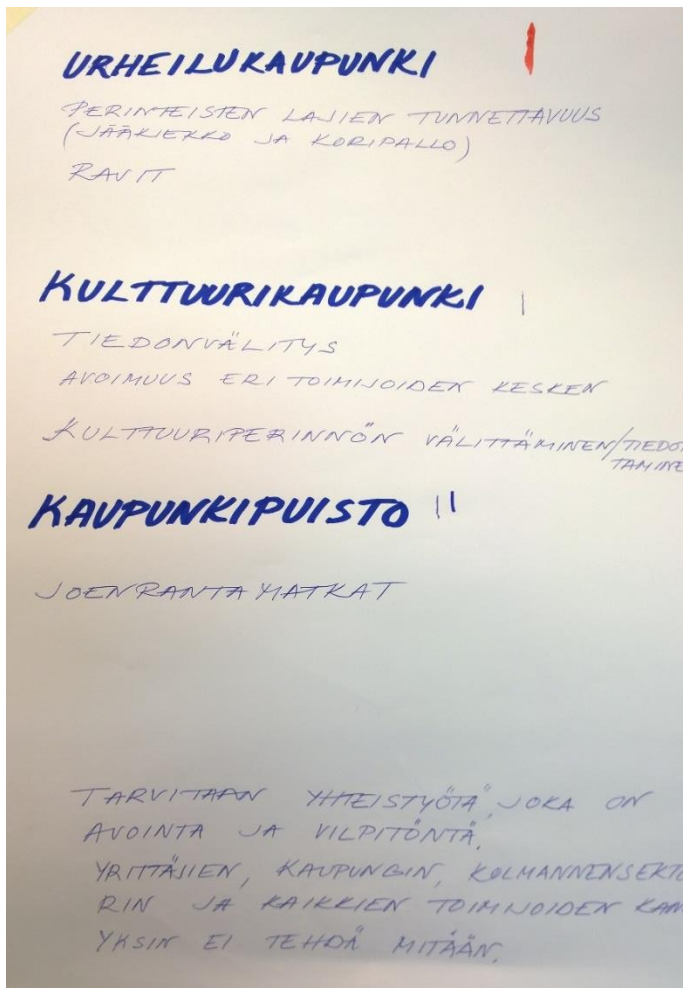 URHEILUKAUPUNKI
PERINTEISTEN LAJIEN TUNNETTAVUUS
(JÄÄKIEKKO JA KORIPALLO)
RAVIT
KULTTUURIKAUPUNKI
TIEDONVÄLITYS
AVOIMUUS ERI TOIMIJOIDEN KESKEN
KULTTUURIPERINNÖN VÄLITTÄMINEN/TIEDOT
TAMINE
KAUPUNKIPUISTO
JOENRANTA MATKAT
TARVITAAN YHTEISTYÖTÄ, JOKA ON
AVOINTA JA VILPITÖNTÄ.
YRITTÄJIEN, KAUPUNGIN, KOLMANNENSEKTO
RIN JA KAIKKIEN TOIMIJOIDEN KAN
YKSIN EI TEHDÄ MITÄÄN.